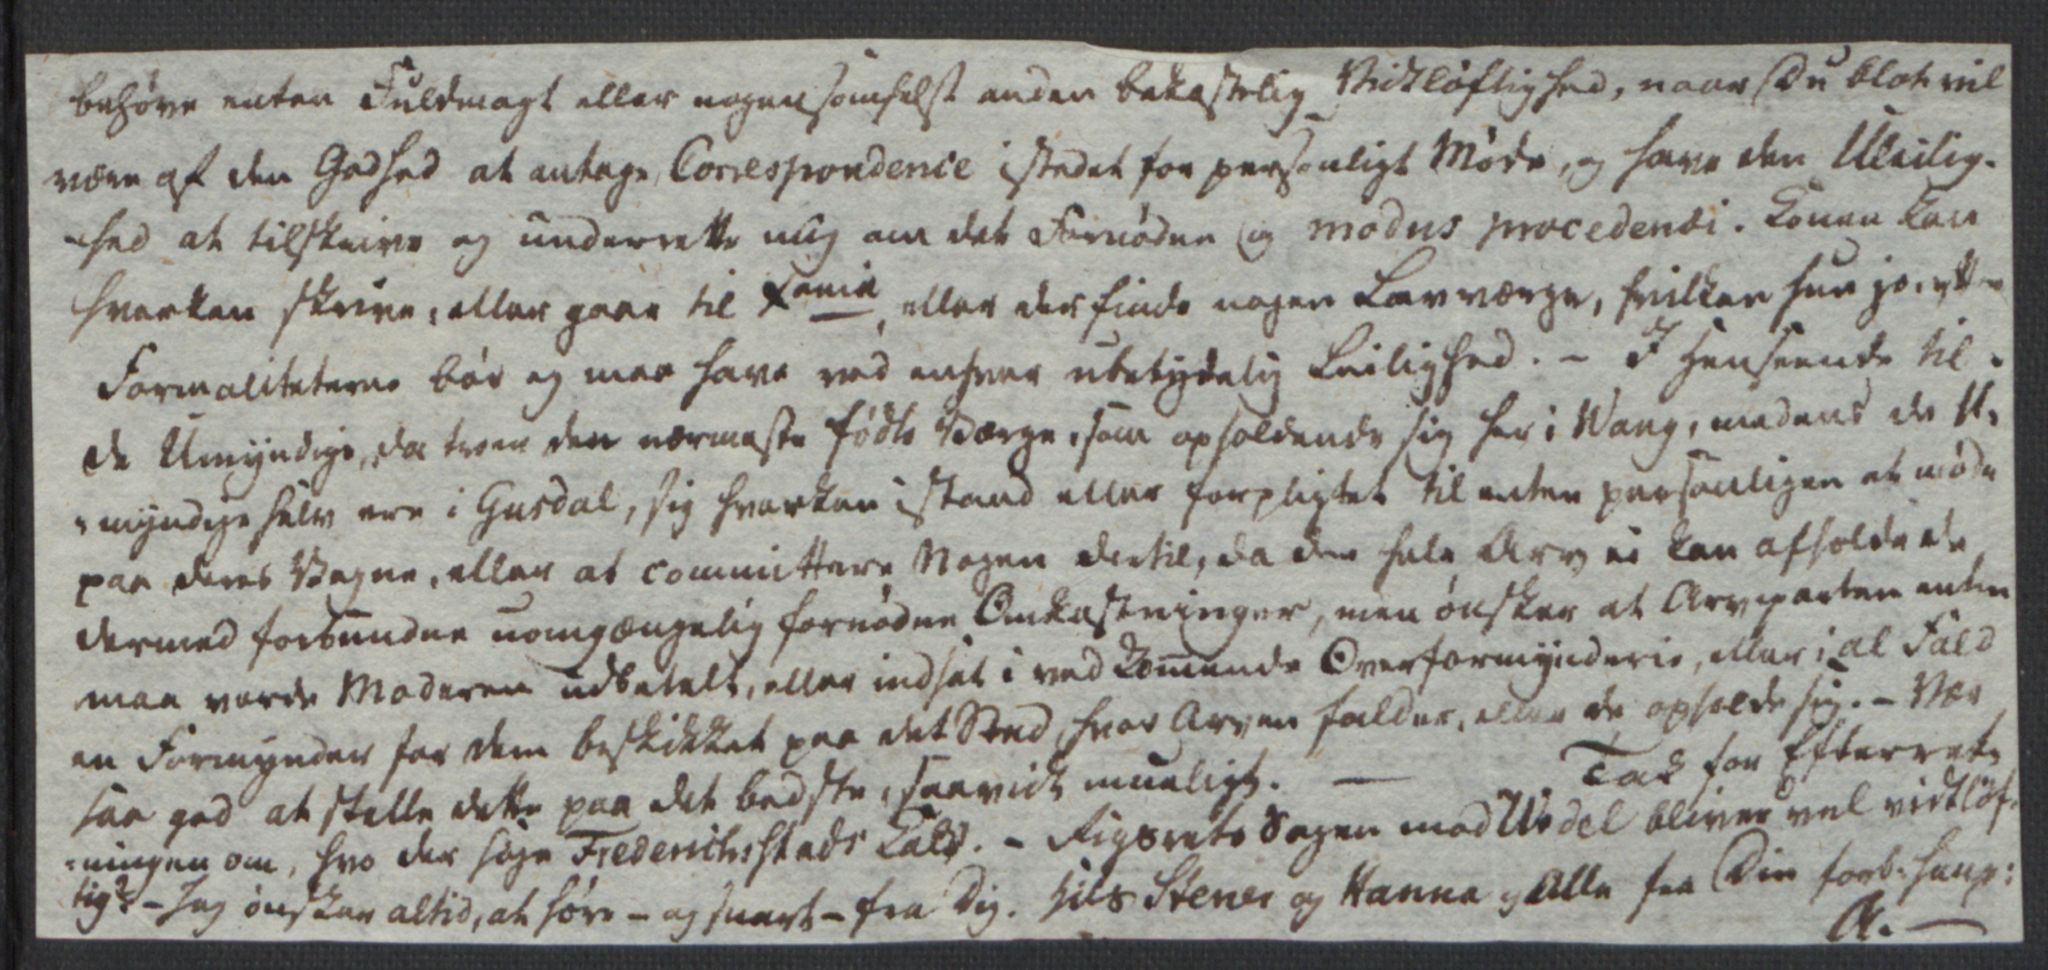 behøve enten Fuldmagt eller nogensomhelst anden bekostelig Vidtløftighed, naar Du blot vil
være af den Godhed at antage Correspondence istedet for personligt Møde, og have den Uleilig-
-hed at tilskrive og underrette mig om det Fornødne og modus procedendi. Konen kan
hverken skrive, eller gaae til eller der finde nogen Lavværge, hvilken hun jo, efter
Formaliteterne bør og maa have ved enhver ubetydelig Leilighed. - I Henseende til
de Umyndige, da troer den nærmeste fødte Værge, som opholdende sig her i Wang, medens de U-
-myndige selv ere i Gusdal, sig hverken istand eller forpligtet til enten personligen at møde
paa deres Vegne, eller at committere Nogen dertil, da den hele Arv ei kan afholde de
dermed forbundne uomgængelig fornødne Omkostninger, men ønsker at Arveparten enten
maa vorde Moderen udbetalt, eller indsat i vedkommende Overformynderie, eller i al Fald
en Formynder for dem beskikket paa det Sted, hvor Arven falder, eller de opholde sig. - Vær
saa god at stelle dette paa det bedste, saavidt mueligt. — Tak for Efterret-
-ningen om, hvo der søge Frederichsstads Kald. - Rigsrets Sagen mod Wedel bliver vel vidtløf-
tig? - Jeg ønsker altid, at høre - og snart - fra Dig. Hils Stener og Hanna og Alle fra Din forb: heng:
A. —